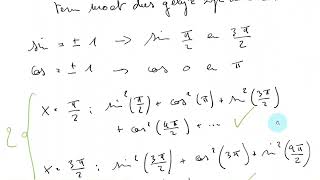 term moet dus gelijk
sin = ± 1 → sin π/2 en 3π/2
cos = ± 1 → cos 0 en π
x = π/2 : sin²(π/2) + cos²(π) + sin²(3π/2)
+ cos²(4π/2) + ...
x = 3π/2 : sin²(3π/2) + cos²(3π) + sin²(9π/2)